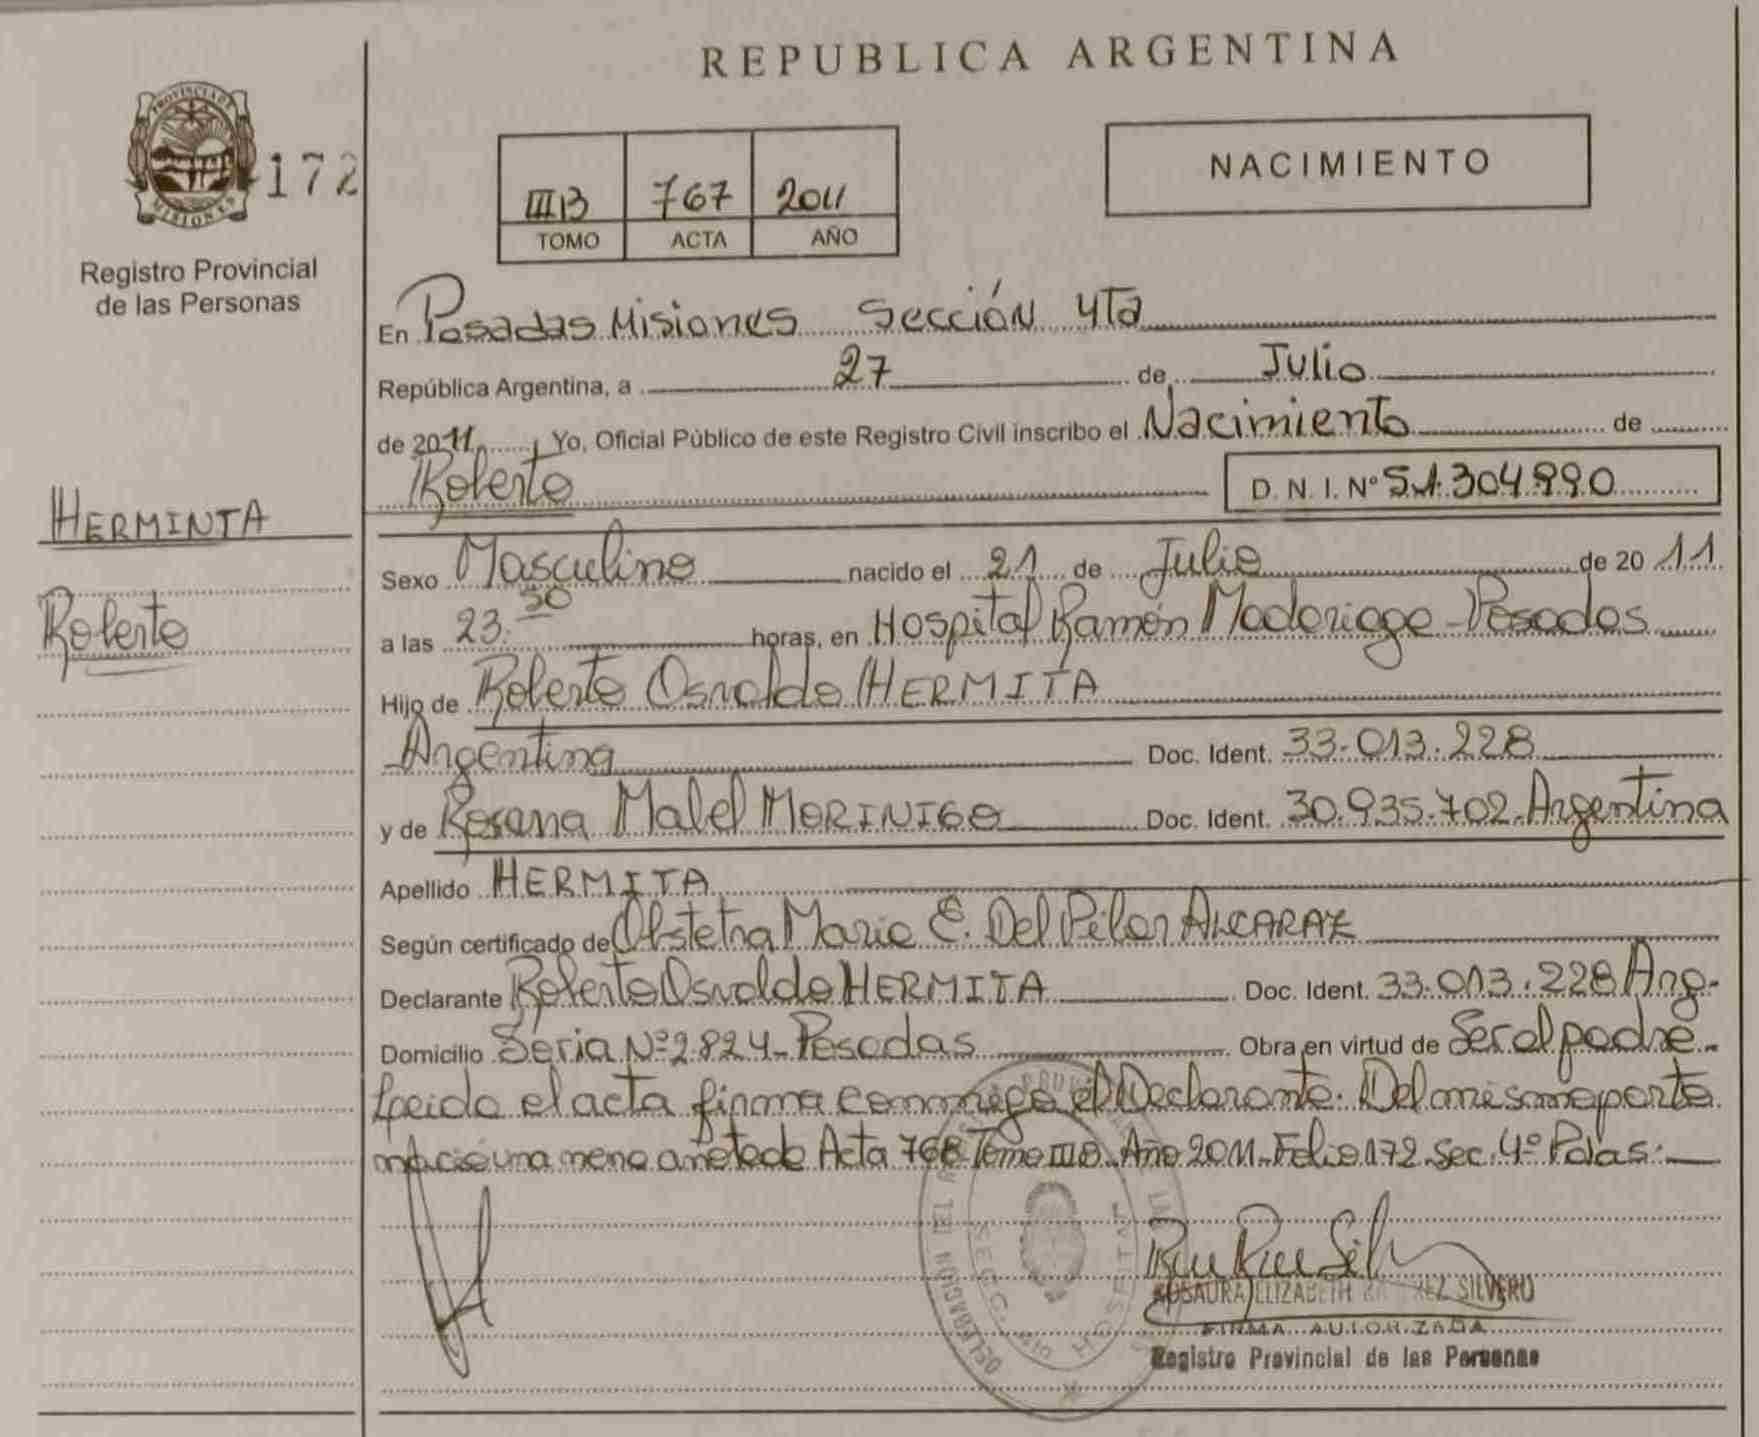 REPUBLICA ARGENTINA
PROVINCIA DE
MISIONES
172
Registro Provincial
de las Personas
NACIMIENTO
III B 767 2011
TOMO ACTA AÑO
En Posadas Misiones Sección 4ta
República Argentina, a 27 de Julio
de 2011, Yo, Oficial Público de este Registro Civil inscribo el Nacimiento de
Roberto
D. N. I. Nº 51.304.990
HERMINTA
Roberto
Sexo Masculino nacido el 21 de Julio de 2011
a las 23.50 horas, en Hospital Ramón Madariaga - Posadas
Hijo de Roberto Osvaldo HERMITA
Argentina Doc. Ident. 33.013.228
y de Rosana Mabel MORINIGO Doc. Ident. 30.935.702 - Argentina
Apellido HERMITA
Según certificado de Obstetra Maria E. Del Pilar ALCARAZ
Declarante Roberto Osvaldo HERMITA Doc. Ident. 33.013.228 Arg.
Domicilio Soria Nº 2824 - Posadas Obra en virtud de Ser el padre -
Leida el acta firma conmigo el Declarante. Del mismo parto
nació una nena anotado Acta 768 Tomo III B Año 2011 - Folio 172 Sec. 4º Pdas.
ROSAURA ELIZABETH SILVERO
FIRMA AUTORIZADA
Registro Provincial de las Personas